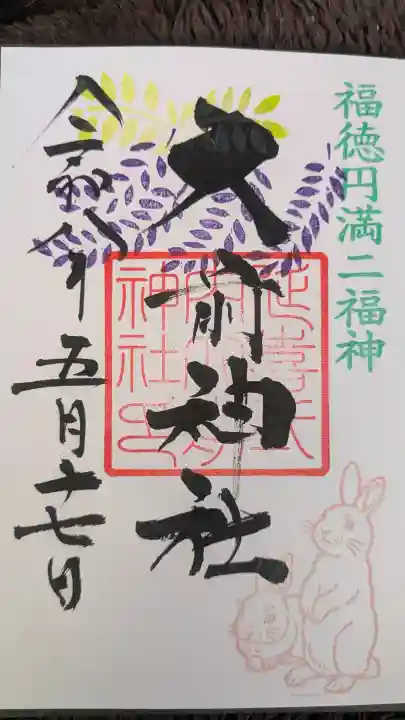 福徳円満二福神
大前神社
延喜式
神社印
令和卯年五月十七日